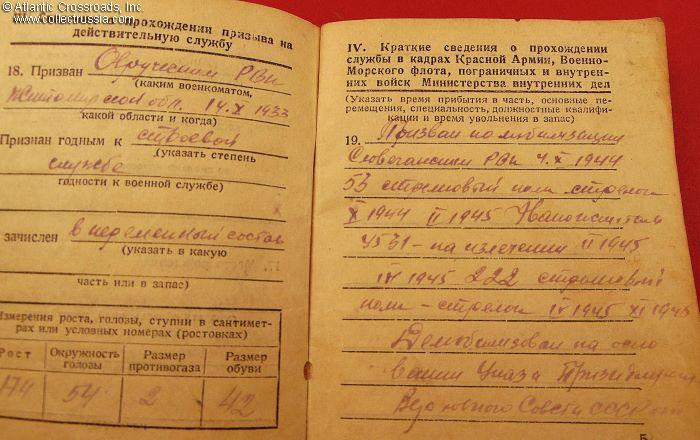 © Atlantic Crossroads, Inc
www.collectrussia.com
прохождении призыва на
действительную службу
18. Призван Овручским РВк
(каким военкоматом,
Житомирской обл. 14.X 1933
какой области и когда)
Признан годным к строевой
(указать степень
службе
годности к военной службе)
зачислен в переменный состав
(указать в какую
часть или в запас)
Измерения роста, головы, ступни в сантимет-
рах или условных номерах (ростовках)
Рост Окружность головы Размер противогаза Размер обуви
174 54 2 42
IV. Краткие сведения о прохождении
службы в кадрах Красной Армии, Военно-
Морского флота, пограничных и внутрен-
них войск Министерства внутренних дел
(Указать время прибытия в часть, основные пе-
ремещения, специальность, должностные квалифи-
кации и время увольнения в запас)
19. Призван по мобилизации
РВк 4.X 1944
53 стрелковый полк стрелок
X 1944 II 1945
4531 - на излечении II 1945
IV 1945 222 стрелковый
полк - стрелок IV 1945 XI 1945
Демобилизован на осно
вании Указа Президиума
Верховного Совета СССР от
5